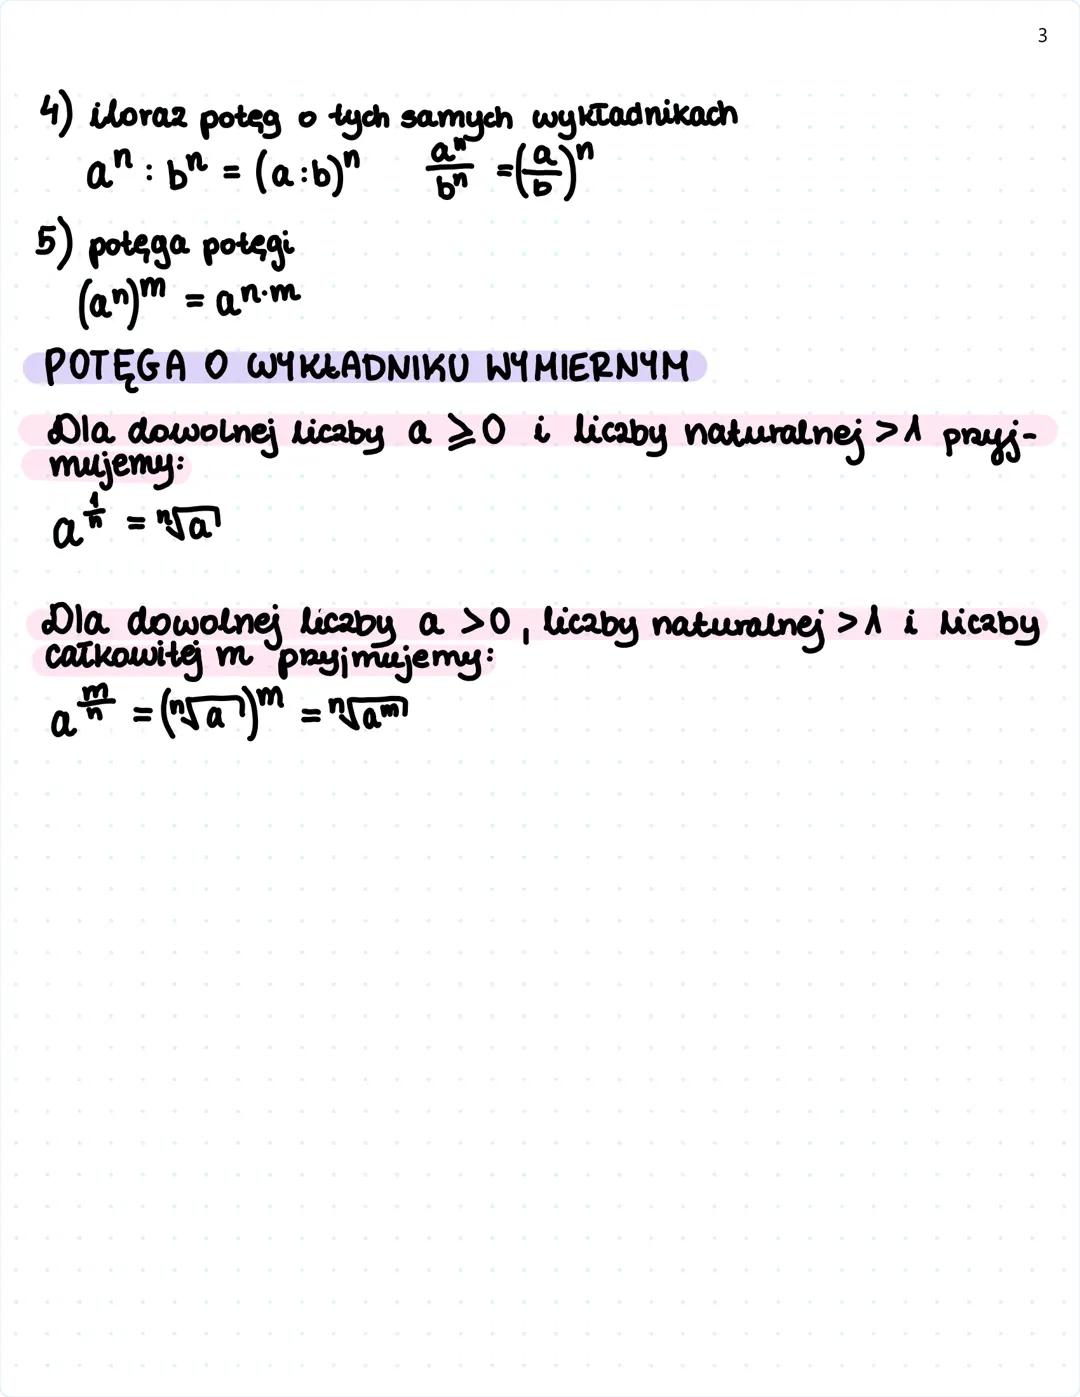 3
4) iloraz potęg o tych samych wykładnikach
aⁿ : bⁿ = (a:b)ⁿ   aⁿ/bⁿ = (a/b)ⁿ
5) potęga potęgi
(aⁿ)ᵐ = aⁿ·ᵐ
POTĘGA O WYKŁADNIKU WYMIERNYM
Dla dowolnej liczby a ⩾ 0 i liczby naturalnej > 1 przyj-
mujemy:
a^(1/n) = ⁿ√a
Dla dowolnej liczby a > 0, liczby naturalnej > 1 i liczby
całkowitej m przyjmujemy:
a^(m/n) = (ⁿ√a)ᵐ = ⁿ√aᵐ